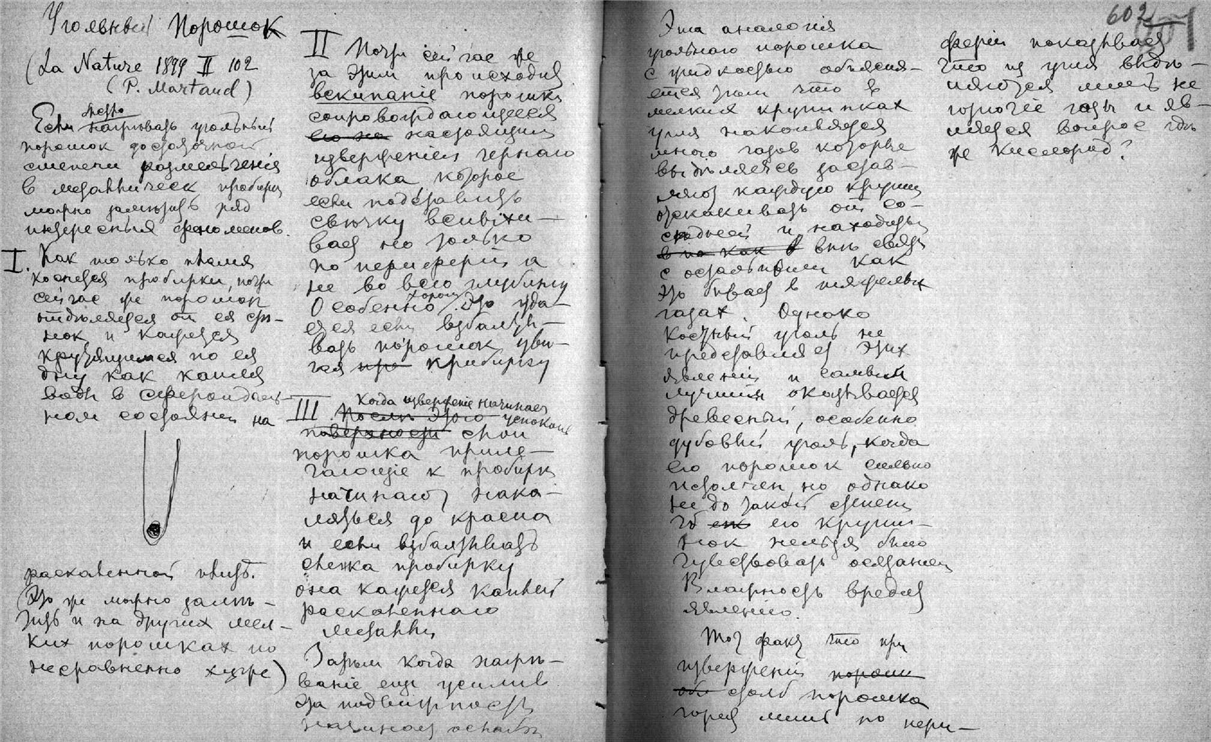 Угольный Порошок
(La Nature 1899 II 102
(P. Martaud)
Если нагрѣвать угольный
порошок достаточной
степени размельченія
в металлическ пробирке
можно замѣтить ряд
интересных феноменов.
I. Как только пламя
коснется пробирки, почти
сейчас же порошок
отдѣляется от ея стѣ-
нок и кажется
крутящимся по ея
дну как капля
воды в сфероидаль-
ном состояніи на
раскаленной плитѣ.
(Это же можно замѣ-
тить и на других мел-
ких порошках но
несравненно хуже)
II Почти сейчас же
за этим происходит
вскипаніе порошка
сопровождающееся
настоящим
изверженіем чернаго
облака которое
если подставить
свѣчку вспыхи-
вает не только
по периферіи а
не во всю глубину
Особенно хорошо это уда-
ется если взбалты-
вать порошок двигая
пробирку
III Когда изверженіе начинает
успокаи
слои
порошка приле-
гающіе к пробирке
начинают нака-
ляться до красна
и если взбалтывать
слегка пробирку
она кажется каплей
раскаленнаго
металла
Затѣм когда нагрѣ-
ваніе еще усилив
эта подвижность
начинает ослабѣ
Эта аналогія
угольнаго порошка
с жидкостью объясня-
ется тѣм что в
мелких крупинках
угля накопляется
много газов которые
выдѣляясь застав-
ляют каждую крупин
отскакивать от со-
сѣдней и находить
внѣ связи
с остальными как
это бывает в
газах. Однако
костный уголь не
представляет этих
явленій и самым
лучшим оказывается
древесный, особенно
дубовый уголь, когда
его порошок сильно
измельчен но однако
не до такой степени
чтб его крупи-
нок нельзя было
чувствовать осязанием
Влажность вредит
явленію.
Тот факт что при
изверженіи
столб порошка
горит лишь по пери-
602
феріи показывает
что из угля выдѣ-
ляются лишь не
горючіе газы и яв-
ляется вопрос гдѣ
же кислород?